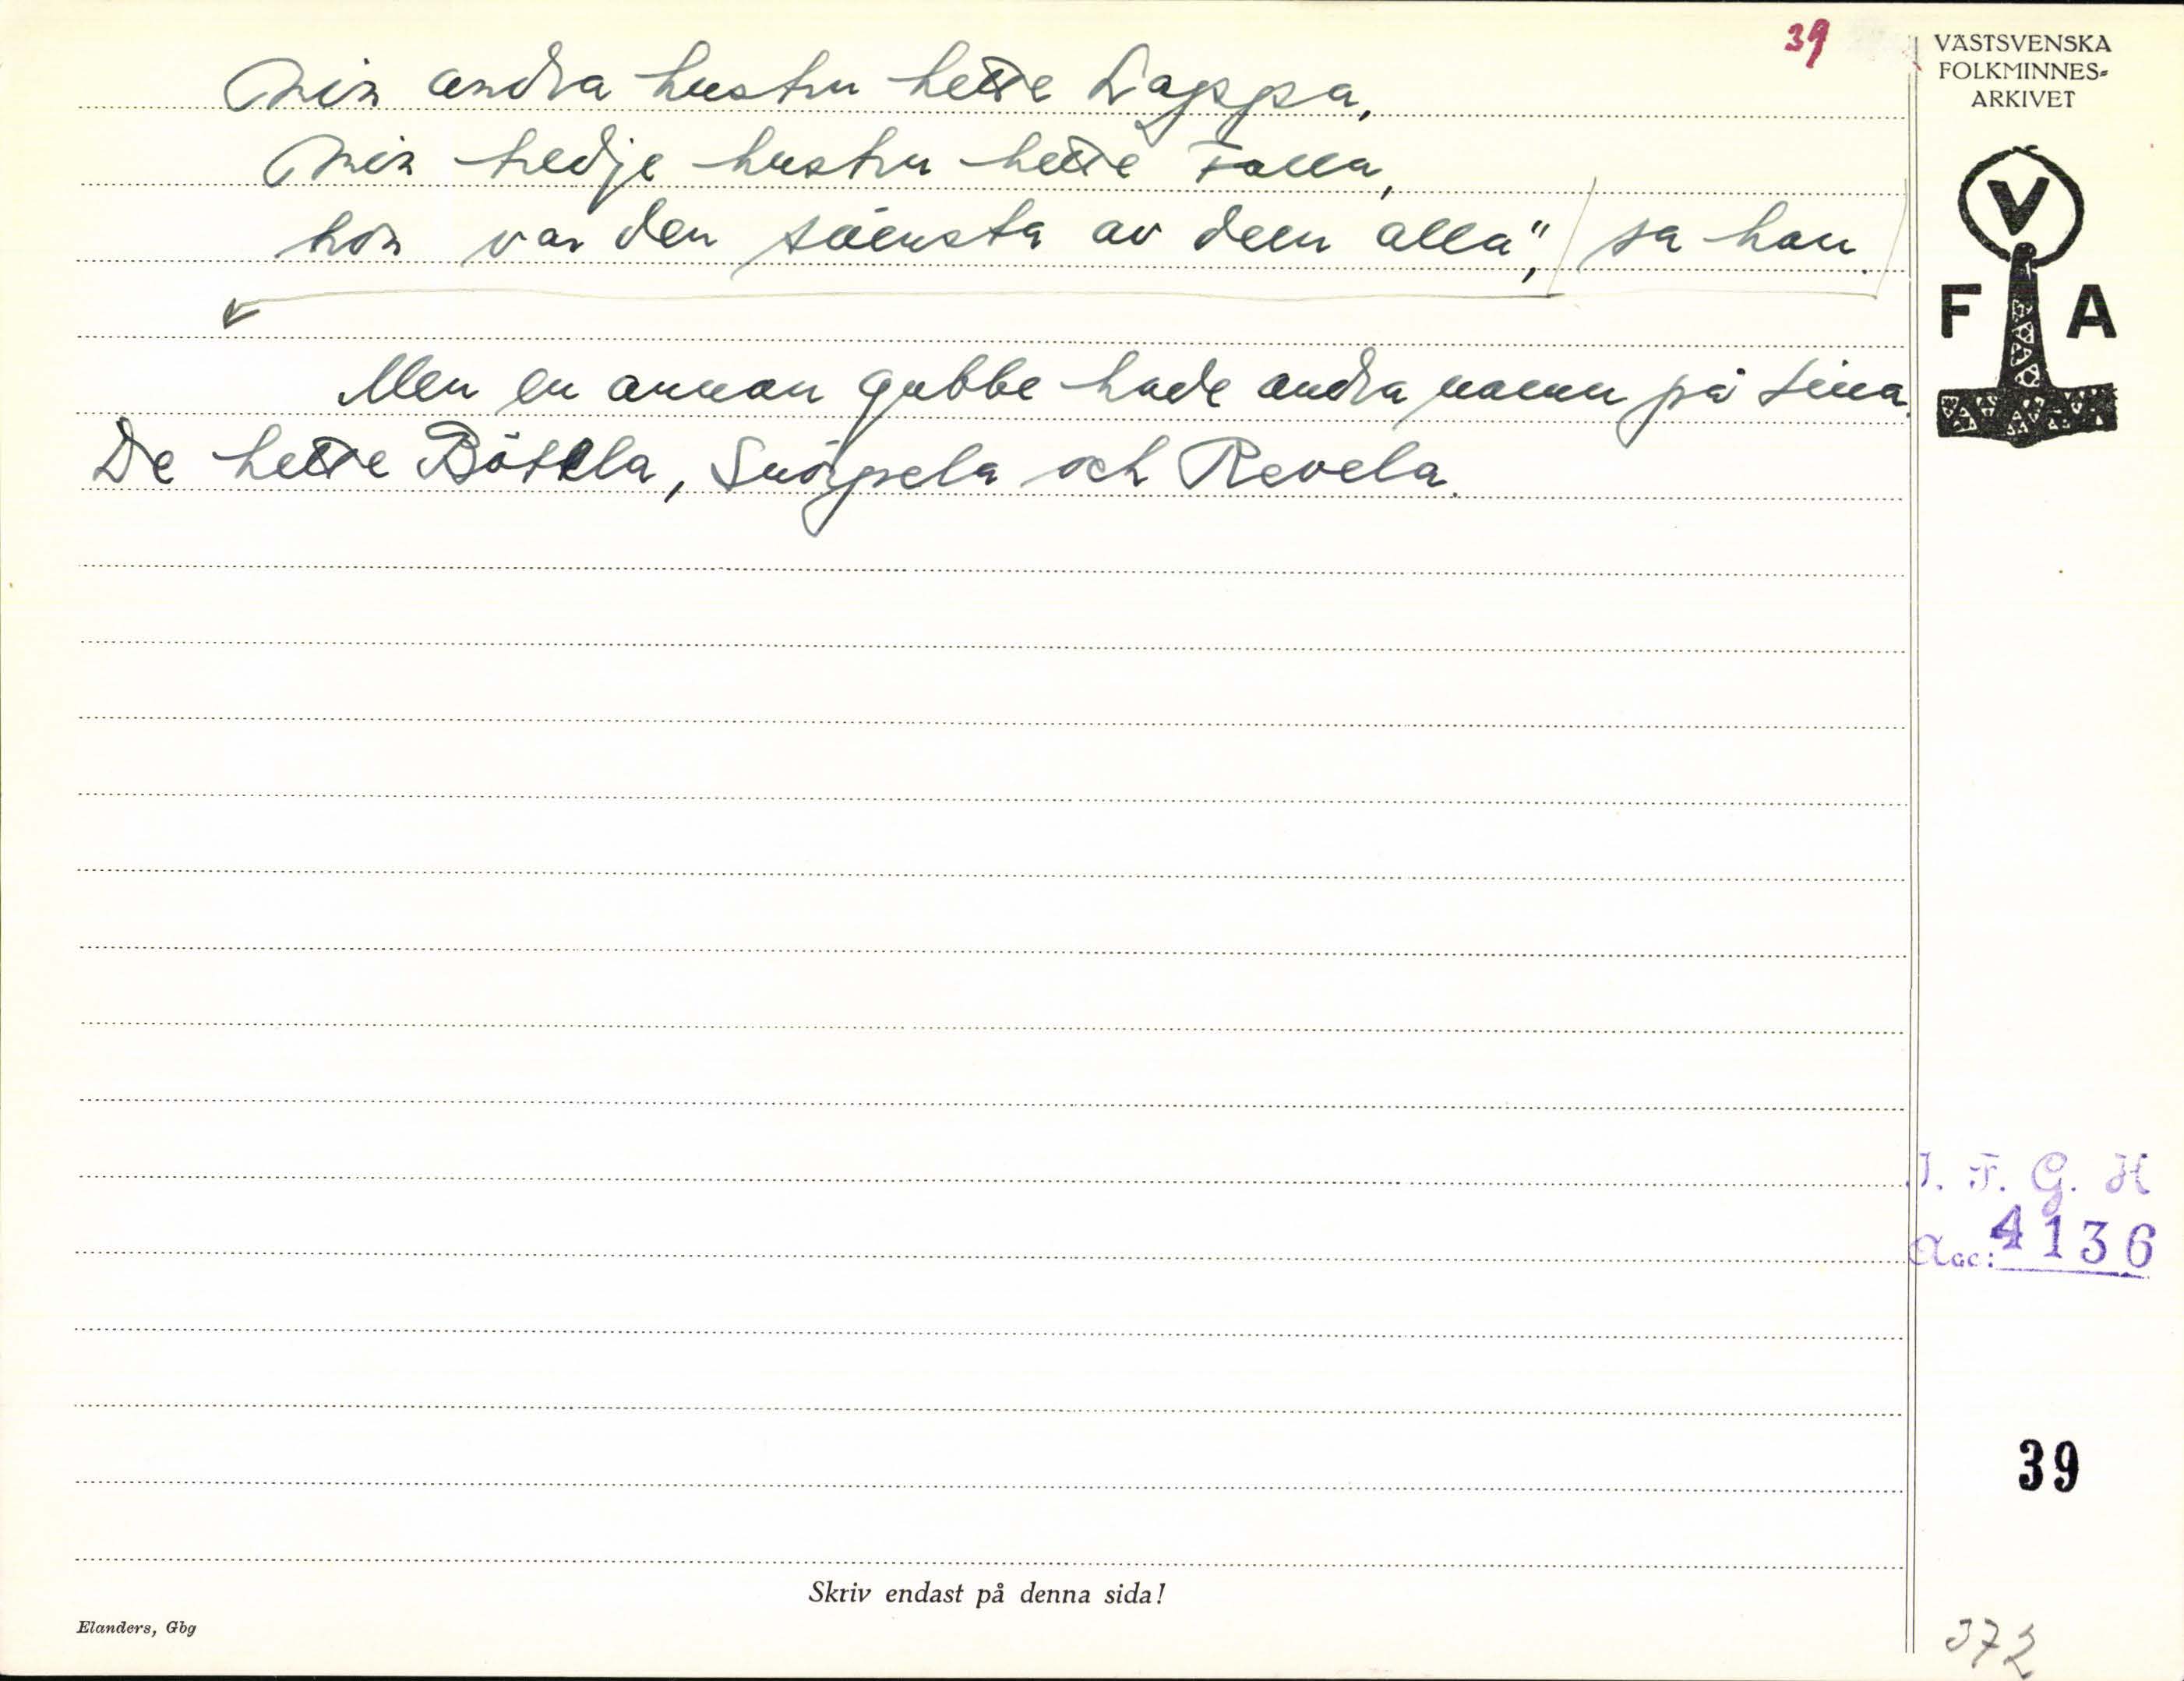 39
VÄSTSVENSKA
FOLKMINNES-
ARKIVET
V
F A
Min andra hustru hette Lappa,
Min tredje hustru hette Falla,
hon var den sämsta av dem alla", sa han.
Men en annan gubbe hade andra namn på sina.
De hette Bötela, Snörpela och Revela.
I. F. G. H
Acc: 4136
39
Skriv endast på denna sida!
Elanders, Gbg
372